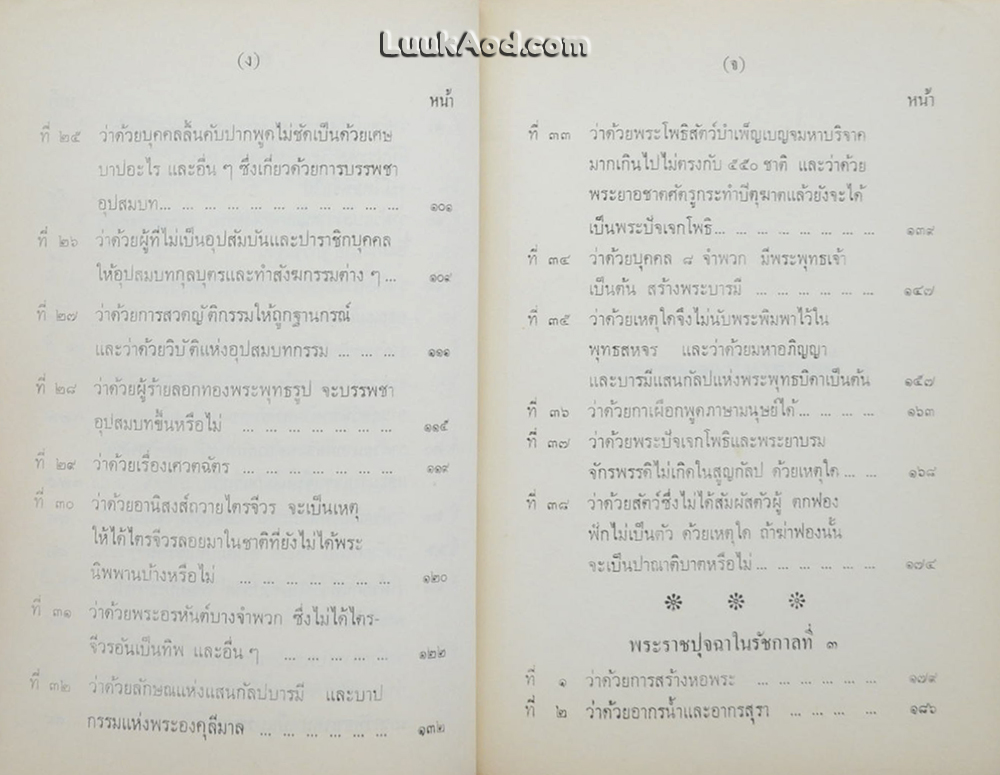 LuukAod.com
(ง)
หน้า
ที่ ๒๕ ว่าด้วยบุคคลลิ้นคับปากพูดไม่ชัดเป็นด้วยเศษ
บาปอะไร และอื่น ๆ ซึ่งเกี่ยวด้วยการบรรพชา
อุปสมบท... ... ... ... ... ... ... ... ... ... ... ๑๐๑
ที่ ๒๖ ว่าด้วยผู้ที่ไม่เป็นอุปสัมบันและปาราชิกบุคคล
ให้อุปสมบทกุลบุตรและทำสังฆกรรมต่าง ๆ ... ๑๐๙
ที่ ๒๗ ว่าด้วยการสวดญัติกรรมให้ถูกฐานกรณ์
และว่าด้วยวิบัติแห่งอุปสมบทกรรม ... ... ... ๑๑๑
ที่ ๒๘ ว่าด้วยผู้ร้ายลอกทองพระพุทธรูป จะบรรพชา
อุปสมบทขึ้นหรือไม่ ... ... ... ... ... ... ... ๑๑๕
ที่ ๒๙ ว่าด้วยเรื่องเศวตฉัตร ... ... ... ... ... ... ... ๑๑๙
ที่ ๓๐ ว่าด้วยอานิสงส์ถวายไตรจีวร จะเป็นเหตุ
ให้ได้ไตรจีวรลอยมาในชาติที่ยังไม่ได้พระ
นิพพานบ้างหรือไม่ ... ... ... ... ... ... ... ๑๒๐
ที่ ๓๑ ว่าด้วยพระอรหันต์บางจำพวก ซึ่งไม่ได้ไตร-
จีวรอันเป็นทิพ และอื่น ๆ ... ... ... ... ... ๑๒๒
ที่ ๓๒ ว่าด้วยลักษณแห่งแสนกัลปบารมี และบาป
กรรมแห่งพระองคุลีมาล ... ... ... ... ... ... ๑๓๒
(จ)
หน้า
ที่ ๓๓ ว่าด้วยพระโพธิสัตว์บำเพ็ญเบญจมหาบริจาค
มากเกินไปไม่ตรงกับ ๕๕๐ ชาติ และว่าด้วย
พระยาอชาตศัตรูกระทำปีตุฆาตแล้วยังจะได้
เป็นพระปัจเจกโพธิ... ... ... ... ... ... ... ... ๑๓๙
ที่ ๓๔ ว่าด้วยบุคคล ๘ จำพวก มีพระพุทธเจ้า
เป็นต้น สร้างพระบารมี ... ... ... ... ... ... ๑๔๗
ที่ ๓๕ ว่าด้วยเหตุใดจึงไม่นับพระพิมพาไว้ใน
พุทธสหจร และว่าด้วยมหาอภิญญา
และบารมีแสนกัลปแห่งพระพุทธบิดาเป็นต้น ๑๕๗
ที่ ๓๖ ว่าด้วยกาเผือกพูดภาษามนุษย์ได้... ... ... ... ๑๖๓
ที่ ๓๗ ว่าด้วยพระปัจเจกโพธิและพระยาบรม
จักรพรรดิไม่เกิดในสูญกัลป ด้วยเหตุใด ... ... ๑๖๘
ที่ ๓๘ ว่าด้วยสัตว์ซึ่งไม่ได้สัมผัสตัวผู้ ตกฟอง
ฟักไม่เป็นตัว ด้วยเหตุใด ถ้าฆ่าฟองนั้น
จะเป็นปาณาติบาตหรือไม่... ... ... ... ... ... ๑๗๔
พระราชปุจฉาในรัชกาลที่ ๓
ที่ ๑ ว่าด้วยการสร้างหอพระ ... ... ... ... ... ... ๑๗๙
ที่ ๒ ว่าด้วยอากรน้ำและอากรสุรา ... ... ... ... ๑๘๖